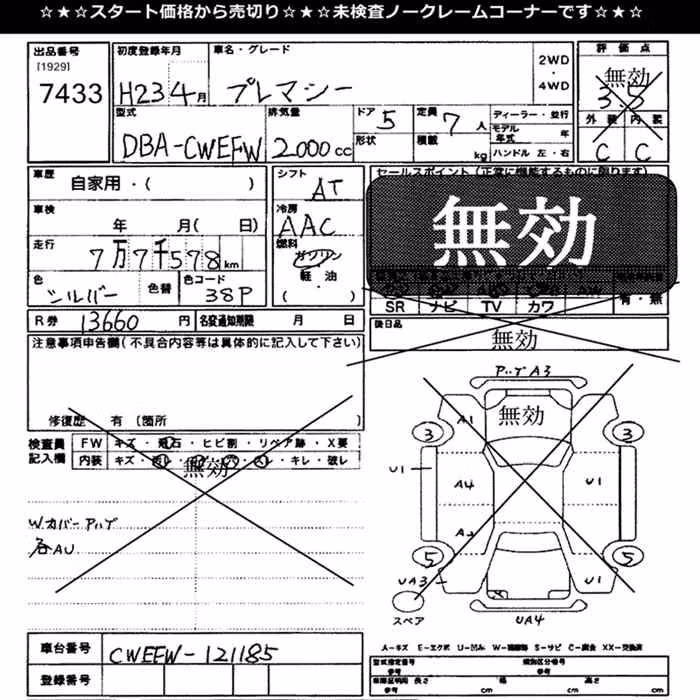 ☆★☆スタート価格から売切り☆★☆未検査ノークレームコーナーです☆★☆
出品番号
[1929]
7433
初度登録年月
H23 4月
車名・グレード
プレマシー
2WD
・
4WD
評価点
無効
3.5
外装 内装
C C
型式
DBA-CWEFW
排気量
2000cc
ドア 5
形状
定員 7人
積載 kg
ディーラー・並行
モデル年式 年
ハンドル 左・右
車歴
自家用・( )
車検
年 月( 日)
走行
7万7千578km
色
シルバー
色替
色コード
38P
シフト
AT
冷房
AAC
燃料
ガソリン
軽・油
( )
セールスポイント(正常に機能するものに限ります)
無効
SR ナビ TV カワ
有・無
R券 13660円
名変通知期限 月 日
後日品
無効
注意事項申告欄(不具合内容等は具体的に記入して下さい)
修復歴 有 (箇所 )
検査員
記入欄
FW キズ・飛石・ヒビ割・リペア跡・X要
内装 キズ・ ・ ・ ・ ・キレ・破レ
無効
Wカバー アリナ
各AU
A3
無効
A1
3 3
U1
A4
U1
5 5
UA3
U1
スペア
UA4
A=キズ E=エクボ U=凹み S=サビ C=腐食 XX=交換済
車台番号
CWEFW-121185
登録番号
型式指定番号
参考
類別区分番号
参考
長さ cm
幅 cm
高さ cm